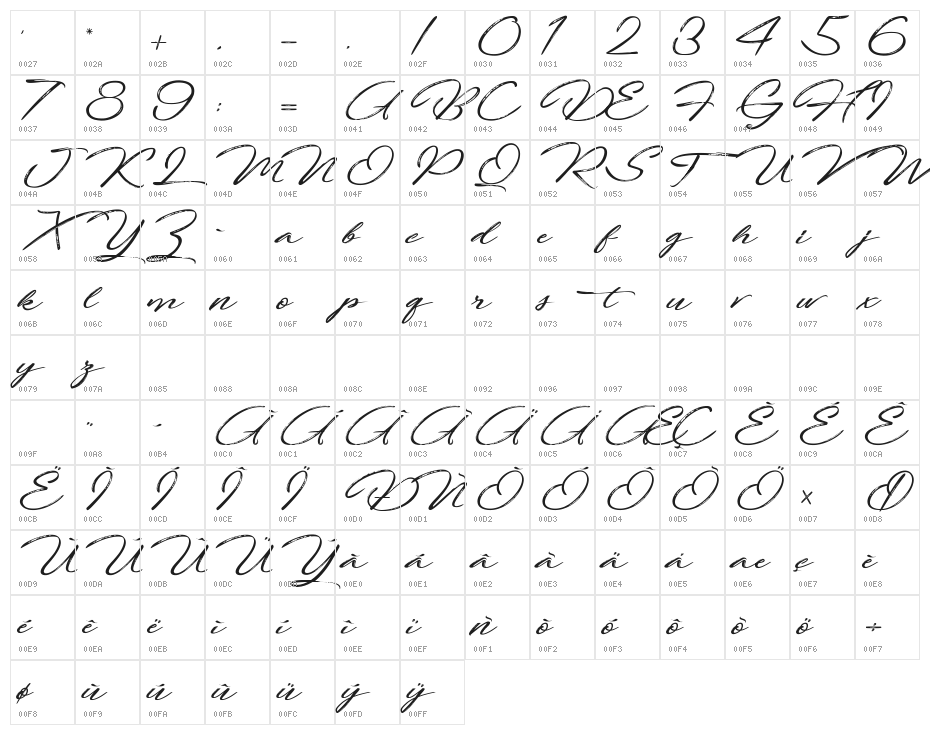 ' * + , - . / 0 1 2 3 4 5 6
0027 002A 002B 002C 002D 002E 002F 0030 0031 0032 0033 0034 0035 0036
7 8 9 : = A B C D E F G H I
0037 0038 0039 003A 003D 0041 0042 0043 0044 0045 0046 0047 0048 0049
J K L M N O P Q R S T U V W
004A 004B 004C 004D 004E 004F 0050 0051 0052 0053 0054 0055 0056 0057
X Y Z ` a b c d e f g h i j
0058 0059 005A 0060 0061 0062 0063 0064 0065 0066 0067 0068 0069 006A
k l m n o p q r s t u v w x
006B 006C 006D 006E 006F 0070 0071 0072 0073 0074 0075 0076 0077 0078
y z
0079 007A 0085 0088 008A 008C 008E 0092 0096 0097 0098 009A 009C 009E
¨ ´ À Á Â Ã Ä Å Æ Ç È É Ê
009F 00A8 00B4 00C0 00C1 00C2 00C3 00C4 00C5 00C6 00C7 00C8 00C9 00CA
Ë Ì Í Î Ï Ð Ñ Ò Ó Ô Õ Ö × Ø
00CB 00CC 00CD 00CE 00CF 00D0 00D1 00D2 00D3 00D4 00D5 00D6 00D7 00D8
Ù Ú Û Ü Ý à á â ã ä å æ ç è
00D9 00DA 00DB 00DC 00DD 00E0 00E1 00E2 00E3 00E4 00E5 00E6 00E7 00E8
é ê ë ì í î ï ñ ò ó ô õ ö ÷
00E9 00EA 00EB 00EC 00ED 00EE 00EF 00F1 00F2 00F3 00F4 00F5 00F6 00F7
ø ù ú û ü ý ÿ
00F8 00F9 00FA 00FB 00FC 00FD 00FF